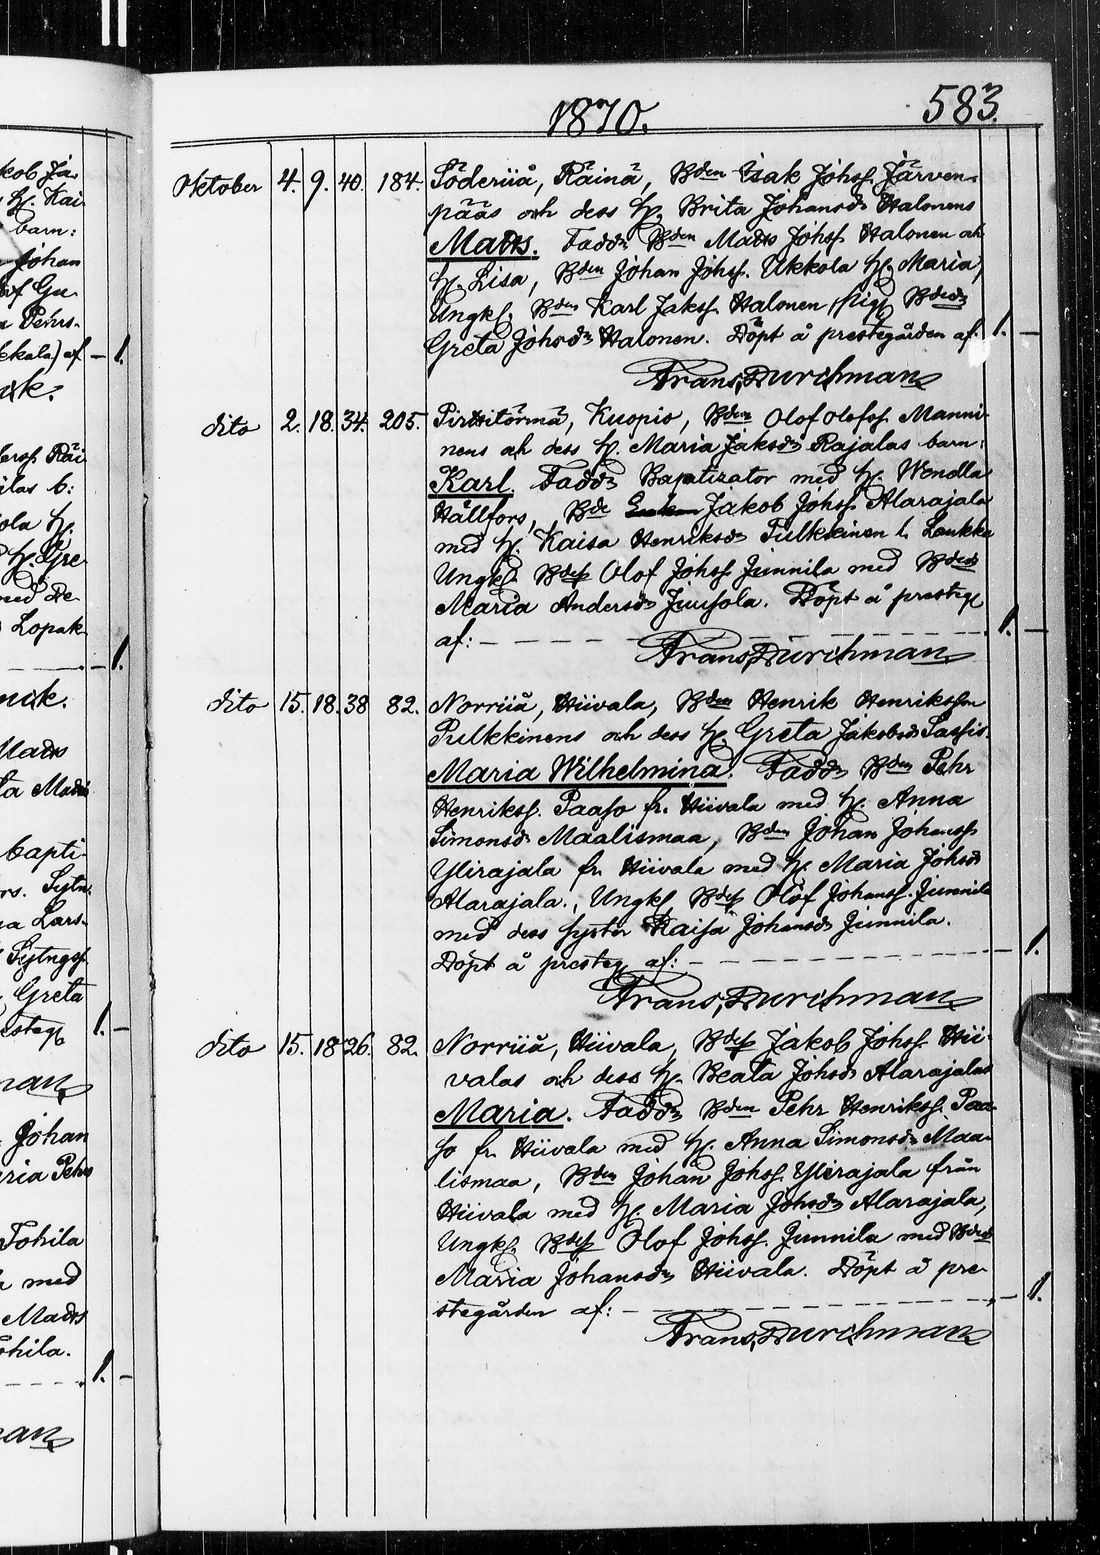 1870.
583.
Oktober 4. 9. 40. 184. Söderiiå, Räinä, Bden Isak Johss. Järven-
pääs och dess h. Brita Johansdr Halonens
Matts. Faddr Bden Matts Johss. Halonen och
h. Lisa, Bden Johan Johss. Ukkola h. Maria,
Ungk. Bden Karl Jakss. Halonen, pig. Bdedr
Greta Johsdr Halonen. Döpt å prestegården af 1. –
Frans Durchman
dito 2. 18. 34. 205. Pirttitörmä, Kuopio, Bden Olof Olofss. Manni-
nens och dess h. Maria Jaksdr Rajalas barn:
Karl. Faddr Baptizator med h. Wendla
Hållfors, Bde Jakob Johss. Alarajala
med h. Kaisa Henriksdr Pulkkinen l. Laukka
Ungk. Bdes Olof Johss. Junnila med Bdedr
Maria Andersdr Juusola. Döpt å presteg.
af: – 1. –
Frans Durchman
dito 15. 18. 38 82. Norriiå, Hiivala, Bden Henrik Henriksson
Pulkkinens och dess h. Greta Jakobsdr Sassis.
Maria Wilhelmina. Faddr Bden Pehr
Henrikss. Paaso fr. Hiivala med h. Anna
Simonsdr Maalismaa, Bden Johan Johanss.
Ylirajala fr. Hiivala med h. Maria Johsdr
Alarajala., Ungk. Bdes Olof Johanss. Junnila
med dess syster Kaisa Johansdr Junnila.
Döpt å presteg. af: – 1.
Frans Durchman
dito 15. 18 26. 82. Norriiå, Hiivala, Bdes Jakob Johss. Hii-
valas och dess h. Beata Johsdr Alarajalas
Maria. Faddr Bden Pehr Henrikss. Paa-
so fr. Hiivala med h. Anna Simonsdr Maa-
lismaa, Bden Johan Johss. Ylirajala från
Hiivala med h. Maria Johsdr Alarajala,
Ungk. Bdes Olof Johss. Junnila med Bdedr
Maria Johansdr Hiivala. Döpt å pre-
stegården af: – 1.
Frans Durchman